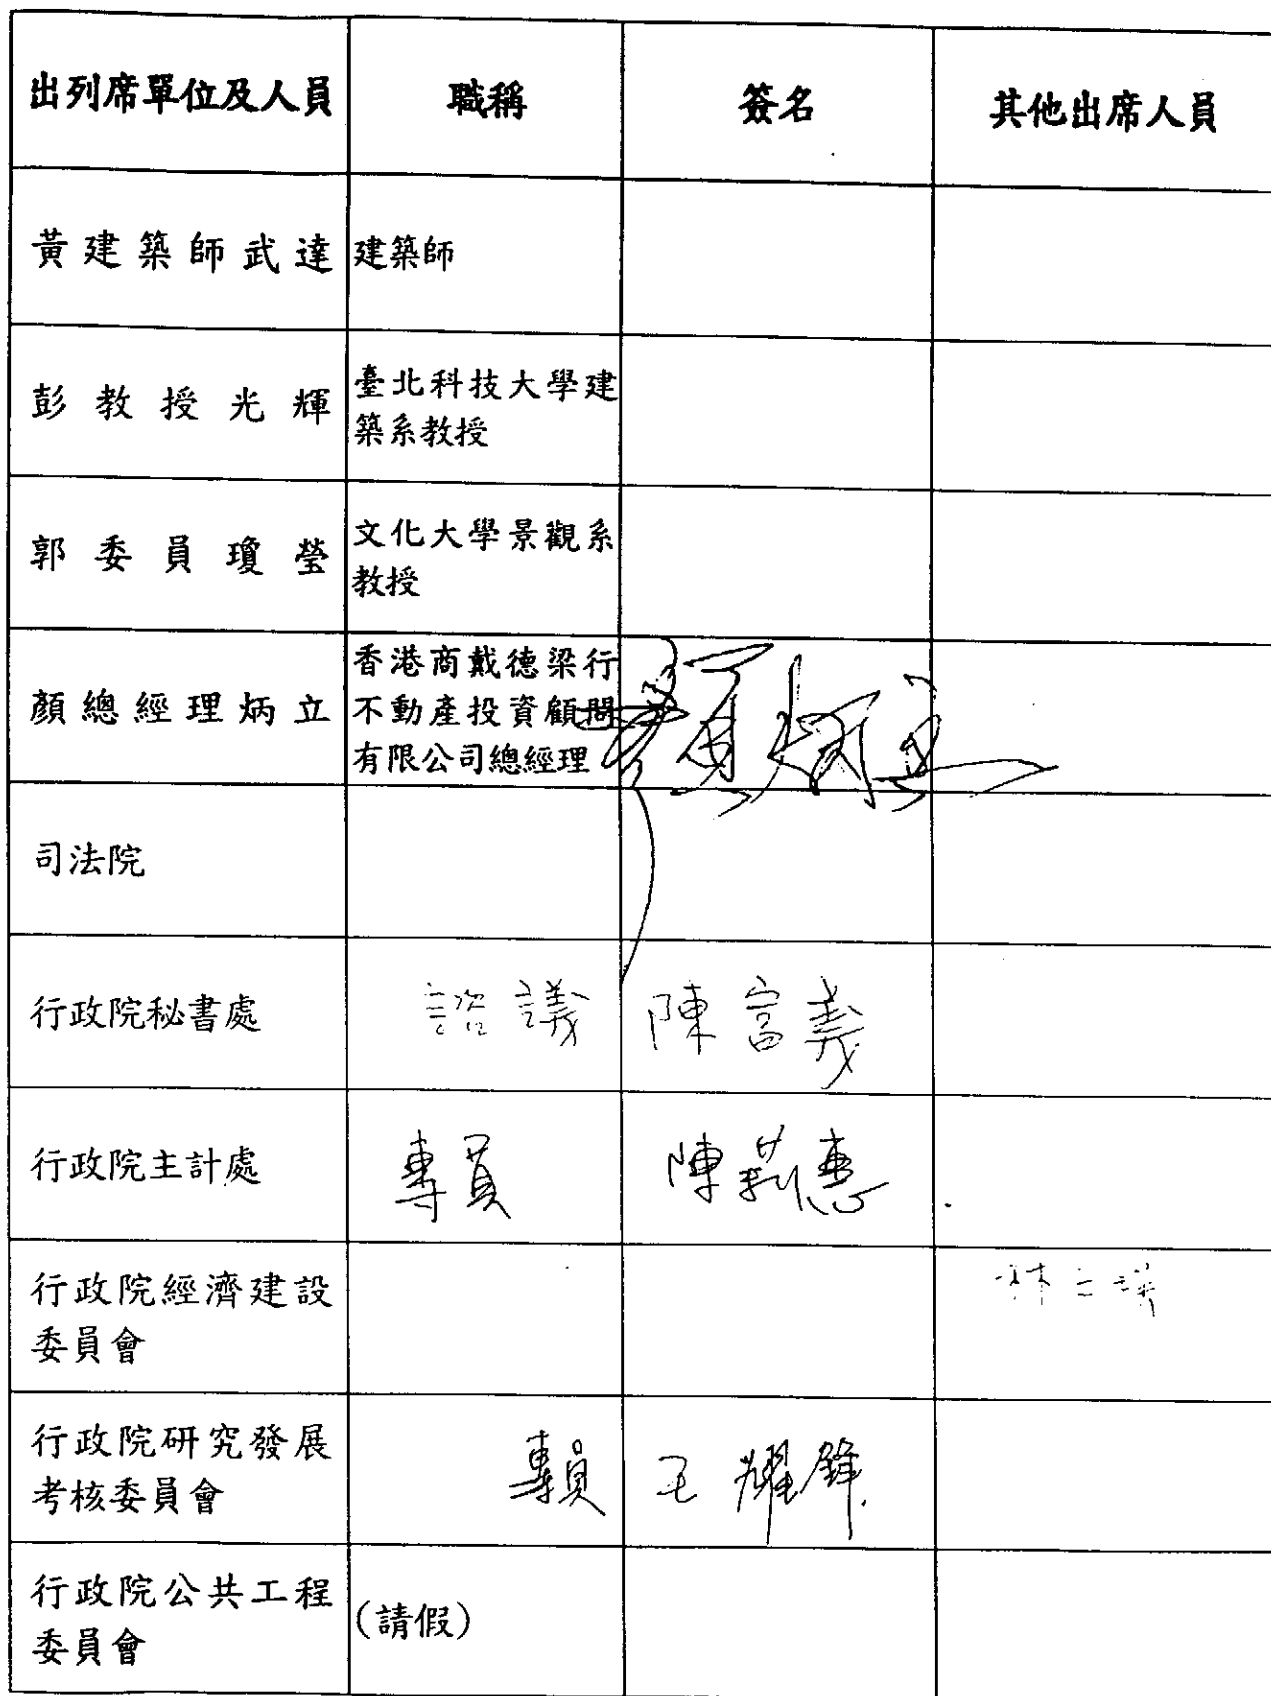 出列席單位及人員 職稱 簽名 其他出席人員
黃建築師武達 建築師
彭教授光輝 臺北科技大學建
築系教授
郭委員瓊瑩 文化大學景觀系
教授
顏總經理炳立 香港商戴德梁行
不動產投資顧問
有限公司總經理 顏炳立
司法院
行政院秘書處 諮議 陳富義
行政院主計處 專員 陳莉惠
行政院經濟建設
委員會 林
行政院研究發展
考核委員會 專員 王耀鋒
行政院公共工程
委員會 (請假)